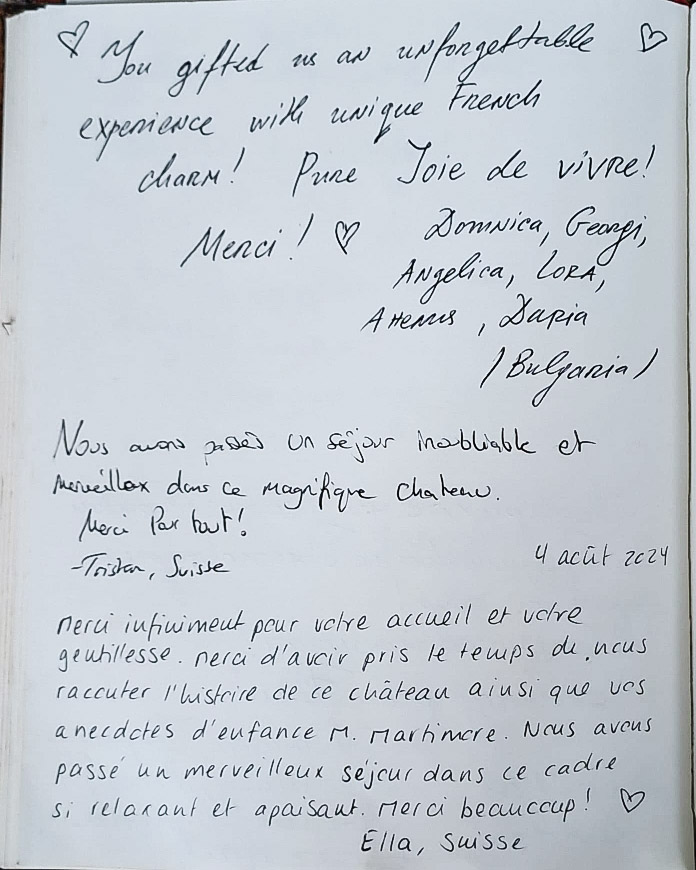 ♡ You gifted us an unforgettable ♡
experience with unique French
charm! Pure Joie de vivre!
Merci! ♡ Domnica, Georgi,
Angelica, LORA,
, Daria
(Bulgaria)
Nous avons passés un séjour inoubliable et
merveillox dans ce magnifique chateau.
Merci Par tout!
-Tristan, Suisse
4 août 2024
merci infiniment pour votre accueil et votre
gentillesse. merci d'avoir pris le temps de nous
raccuter l'histoire de ce château ainsi que vos
anecdotes d'enfance M. Martimore. Nous avons
passé un merveilleux séjour dans ce cadre
si relaxant et apaisant. merci beaucoup! ♡
Ella, Suisse